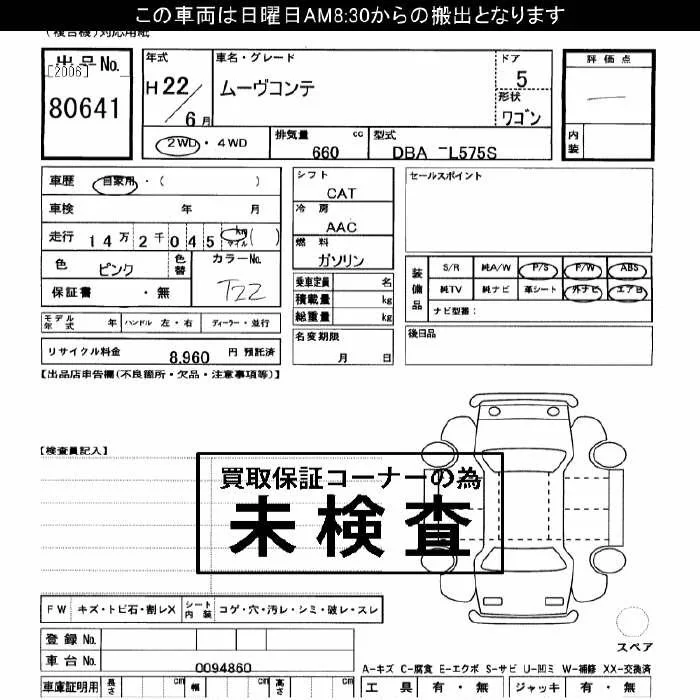 この車両は日曜日AM8:30からの搬出となります
(複合機)対応用紙
出品No.
[2006]
80641
年式
H 22 / 6 月
車名・グレード
ムーヴコンテ
ドア
5
形状
ワゴン
評価点
内装
2WD・4WD
排気量 cc
660
型式
DBA -L575S
車歴 自家用・( )
車検 年 月
走行 14万2千045 km マイル ( )
色 ピンク
色替
カラーNo.
T22
保証書 ・無
シフト
CAT
冷房
AAC
燃料
ガソリン
乗車定員 名
積載量 kg
総重量 kg
名変期限
月 日
セールスポイント
装備品
S/R 純A/W P/S P/W ABS
純TV 純ナビ 革シート 外ナビ エアB
ナビ型番:
後日品
モデル年式 年 ハンドル 左・右 ディーラー・並行
リサイクル料金 8,960 円 預託済
【出品店申告欄(不良箇所・欠品・注意事項等)】
【検査員記入】
買取保証コーナーの為
未検査
FW キズ・トビ石・割レX シート内装 コゲ・穴・汚レ・シミ・破レ・スレ
登録No.
車台No. 0094860
スペア
A-キズ C-腐食 E-エクボ S-サビ U-凹ミ W-補修 XX-交換済
車庫証明用 長さ cm 幅 cm 高さ cm
工具 有・無 ジャッキ 有・無